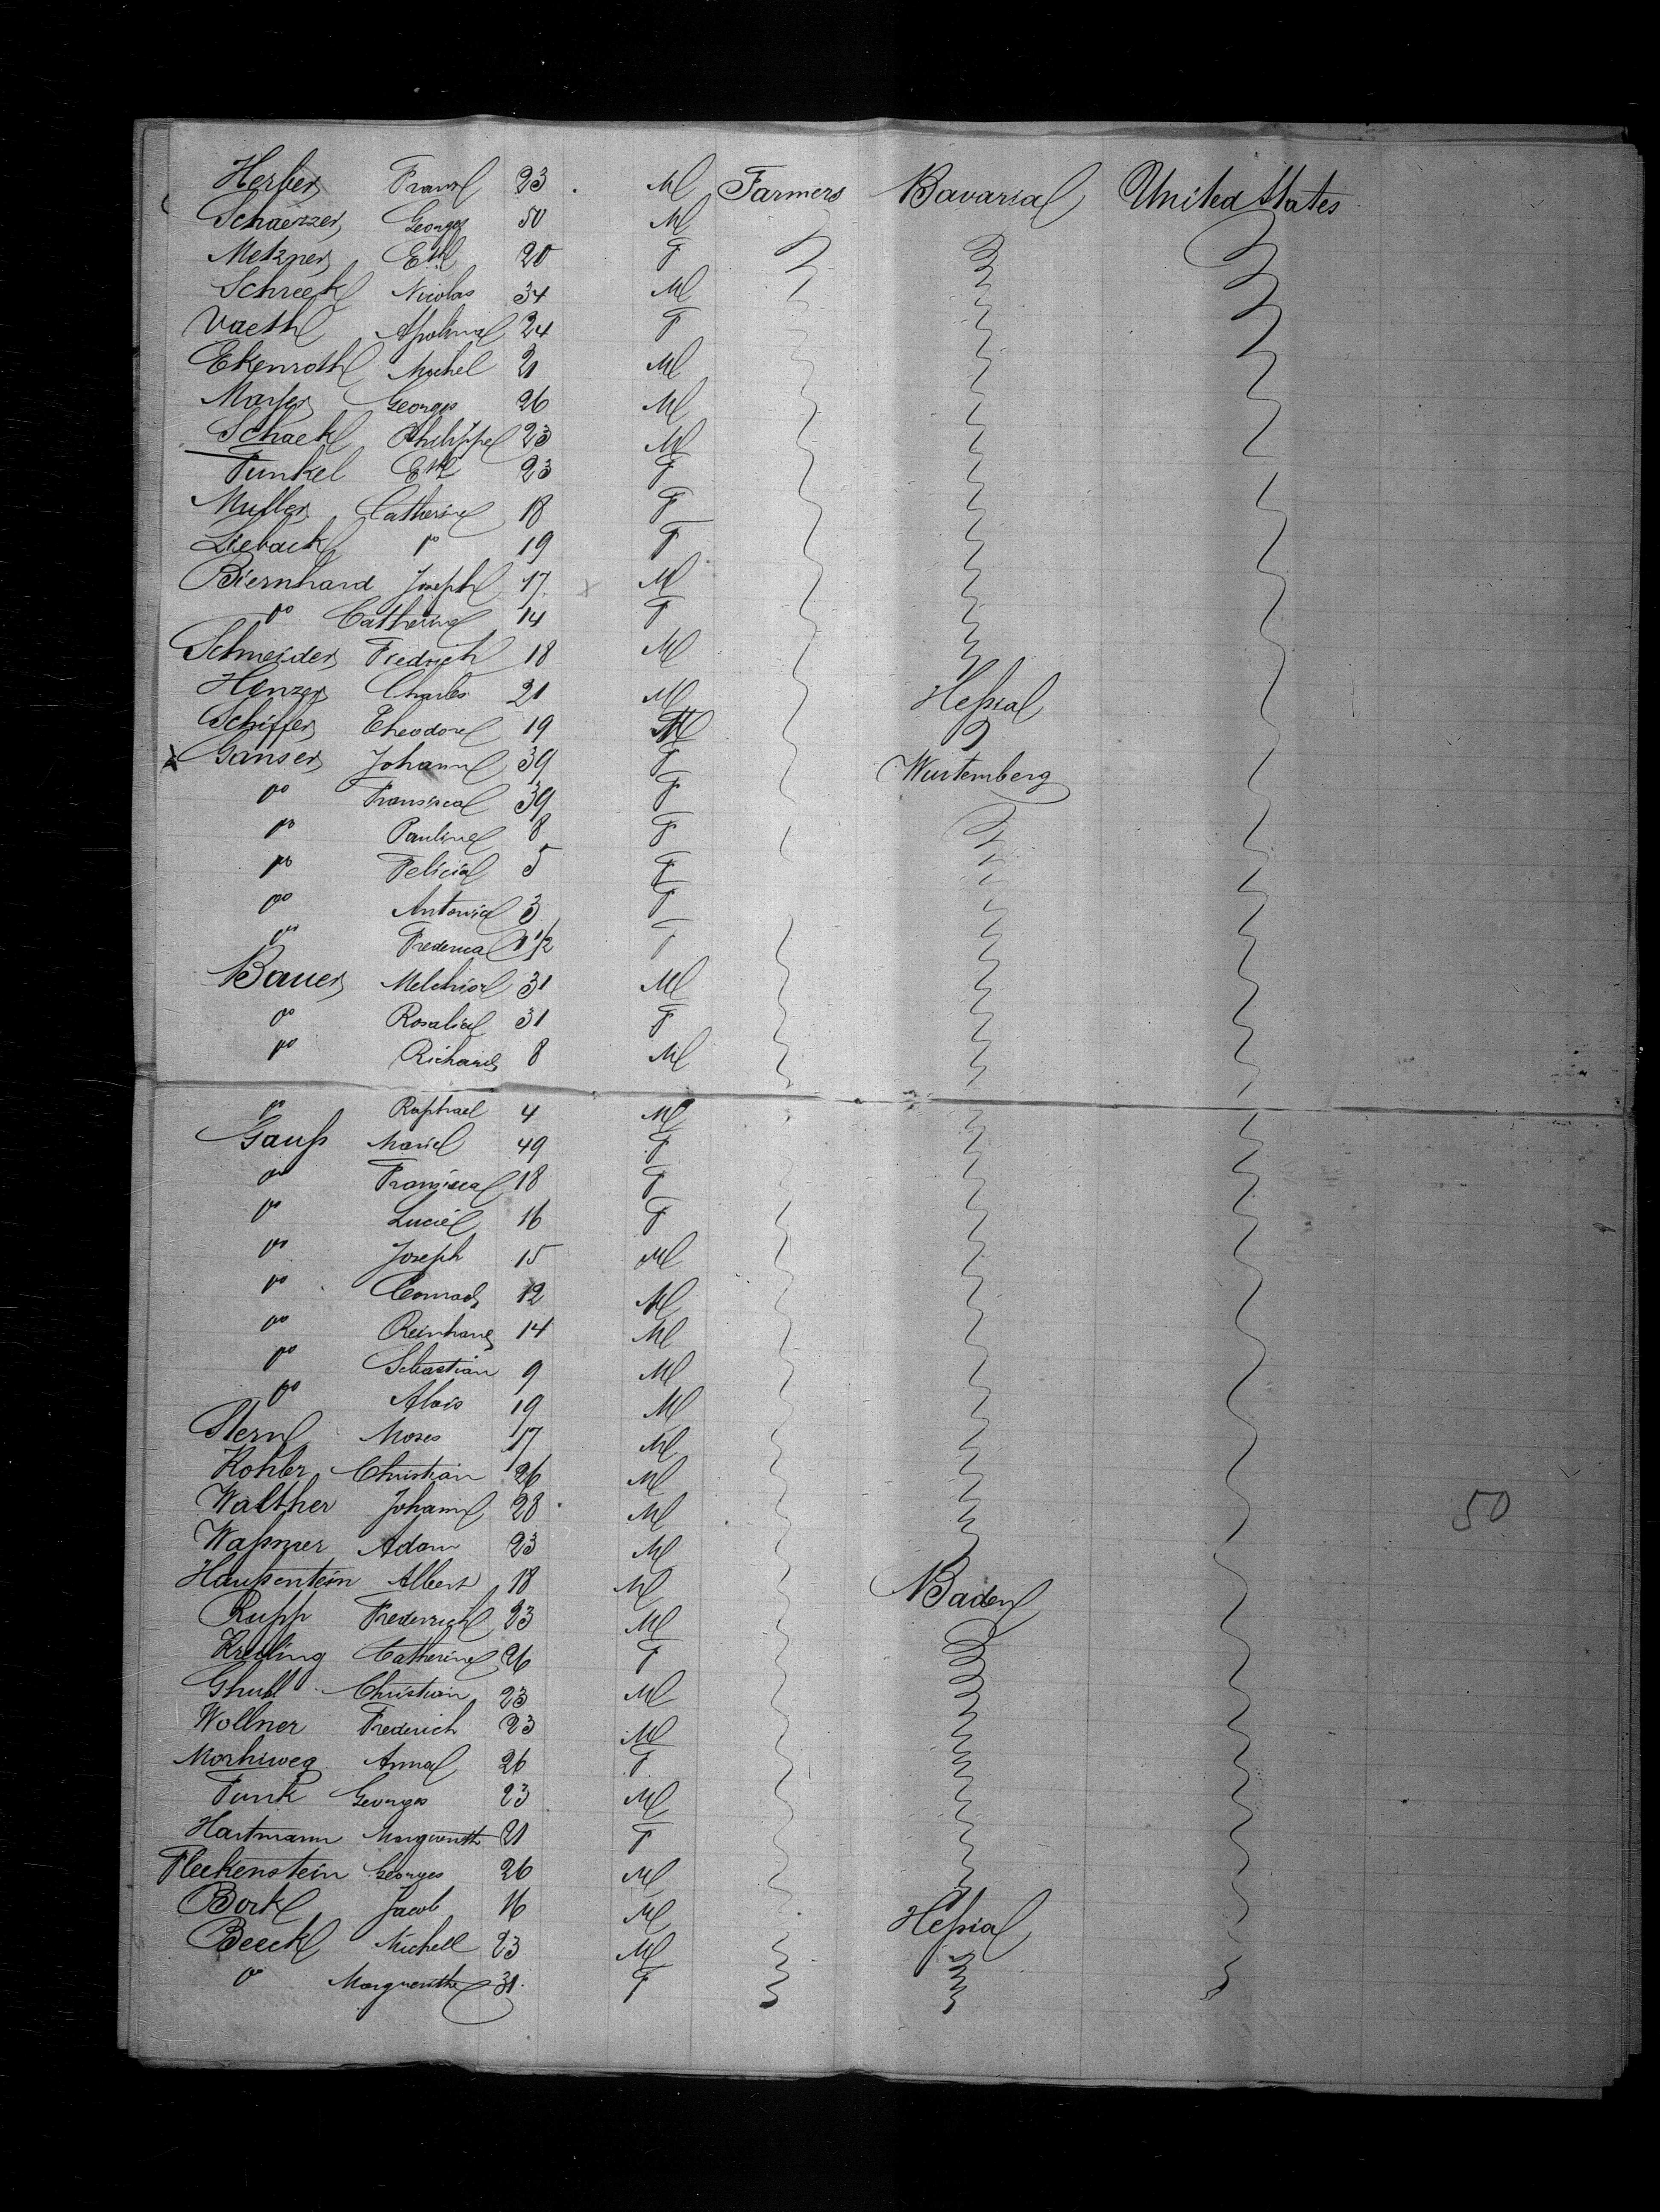 Herber Franz 23 M Farmers Bavaria United States
Schaezzer Georges 50 M
Metzner Eth 20 F
Schreck Nicolas 34 M
Vaeth Apolina 24 F
Ekenroth Michel 21 M
Georges 26 M
Schaek Philippe 23 M
Funkel Eth 23 F
Muller Catherine 18 F
Lieback do 19 F
Biernhard Joseph 17 M
do Catherine 14 F
Schneider Fredrich 18 M
Henzer Charles 21 M Heßia
Schiffer Theodore 19 M
x Ganser Johann 39 F Wurtemberg
do Fransisca 39 F
do Pauline 8 F
do Felicia 5 F
do Antonia 3 F
do Frederica 1 1/2 F
Bauer Melchior 31 M
do Rosalia 31 F
do Richard 8 M
do Raphael 4 M
Gauß Marie 49 F
do Franzisca 18 F
do Lucie 16 F
do Joseph 15 M
do Conrad 12 M
do Reinhard 14 M
do Sebastian 9 M
do Alois 19 M
Stern Moses 17 M
Kohler Christian 26 M
Walther Johann 28 M 50
Waßmer Adam 23 M
Haußentein Albert 18 M Baden
Rupp Frederrich 23 M
Kreiling Catherine 26 F
Christian 23 M
Wollner Frederich 23 M
Morhiweg Anna 26 F
Funk Georges 23 M
Hartmann Marguerith 21 F
Fleckenstein Georges 26 M
Bork Jacob 16 M Heßia
Beeck Michell 23 M
do Marguerithe 31 F